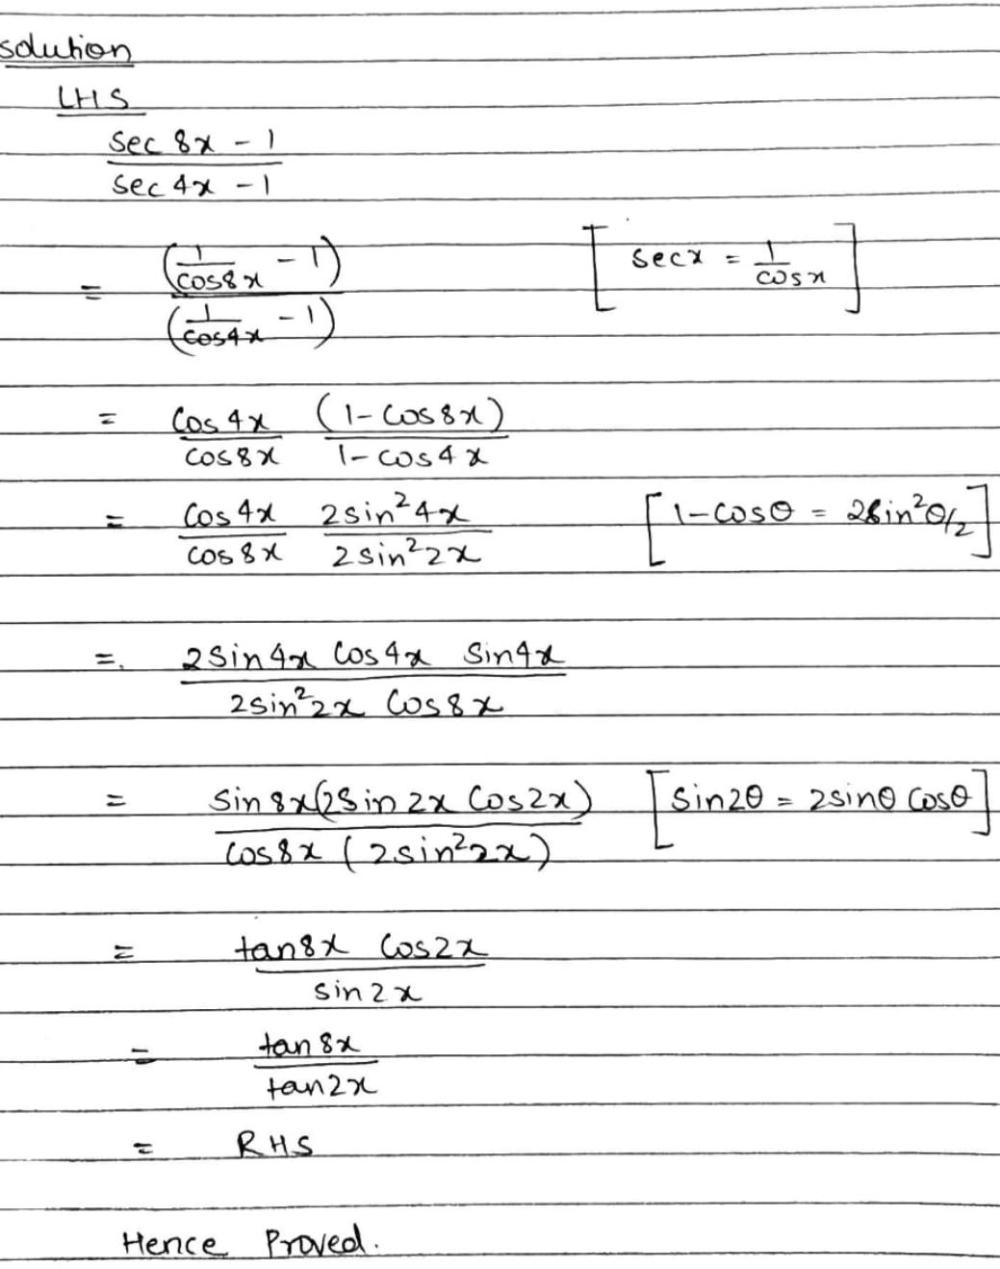 solution
LHS
sec 8x - 1
sec 4x - 1
= (1/cos8x - 1) / (1/cos4x - 1) [secx = 1/cosx]
= cos4x/cos8x (1-cos8x)/1-cos4x
= cos4x/cos8x 2sin²4x/2sin²2x [1-cosθ = 2sin²θ/2]
=. 2sin4x cos4x sin4x
2sin²2x cos8x
= sin8x(2sin2x cos2x) / cos8x (2sin²2x) [sin2θ = 2sinθ cosθ]
= tan8x cos2x
sin2x
= tan8x
tan2x
= RHS
Hence Proved.